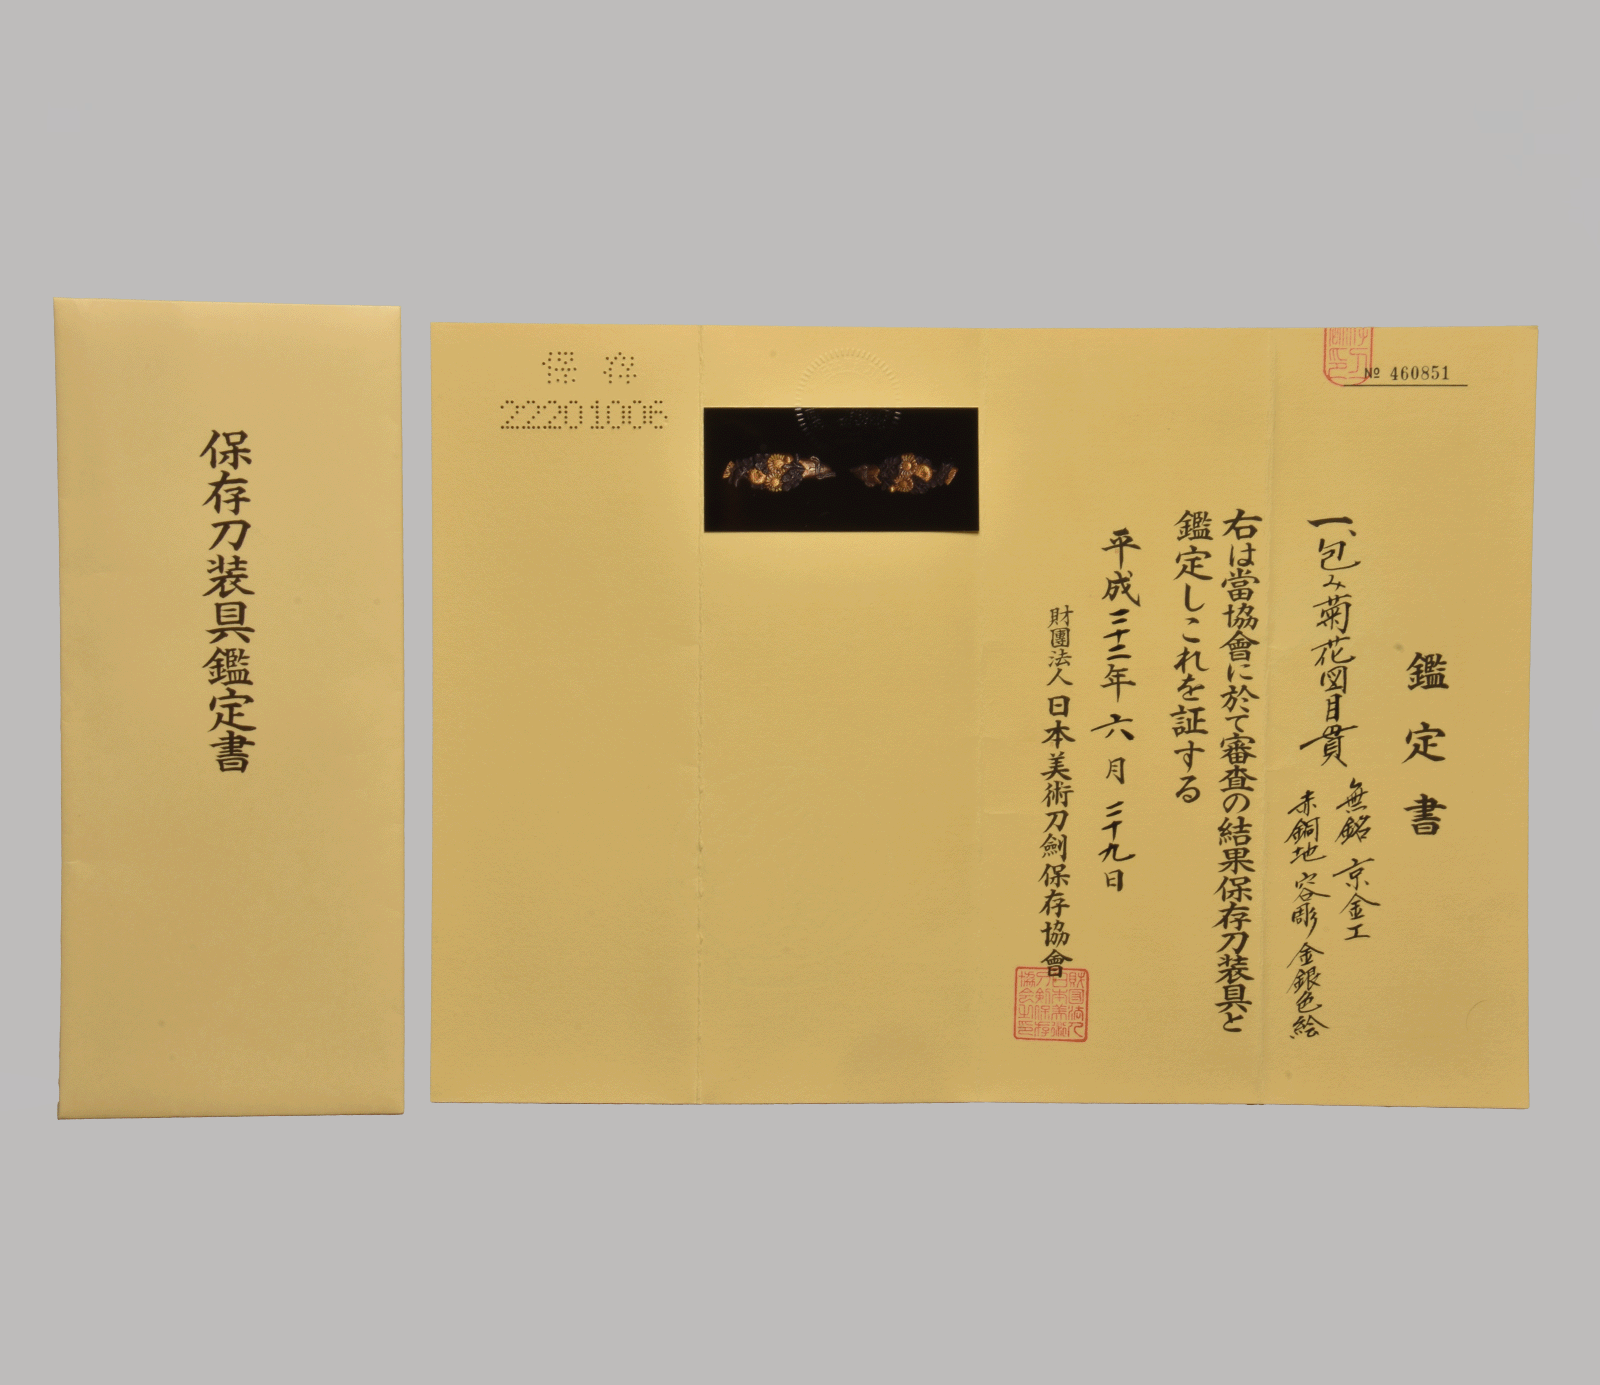 保存刀装具鑑定書
№ 460851
鑑定書
一、包み菊花図目貫
無銘 京金工
赤銅地 容彫 金銀色絵
右は當協會に於て審査の結果保存刀装具と
鑑定しこれを証する
平成二十二年六月二十九日
財團法人 日本美術刀劍保存協會
保存
22201006